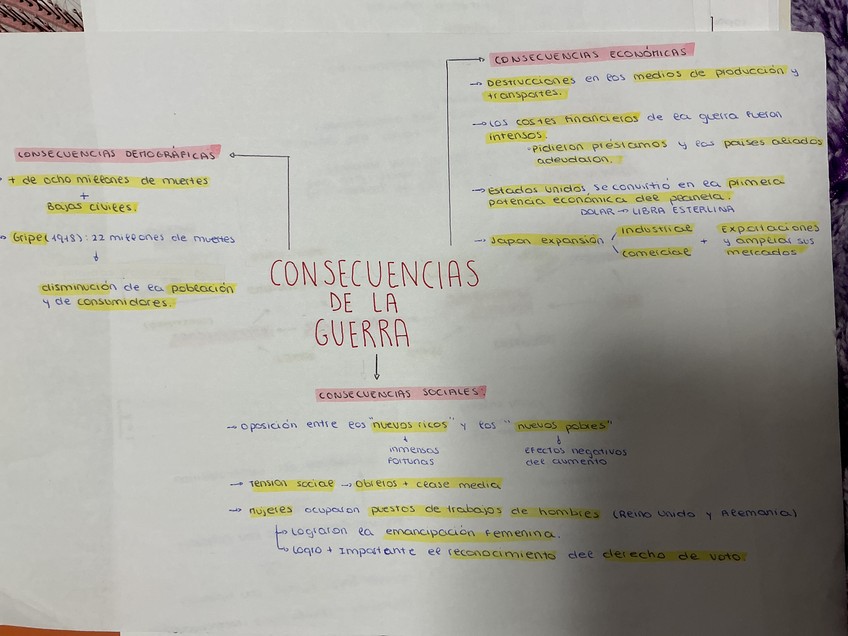 CONSECUENCIAS DEMOGRÁFICAS
+ de ocho millones de muertes
+
Bajas civiles.
Gripe (1918): 22 millones de muertes
disminución de la población
y de consumidores.
CONSECUENCIAS ECONÓMICAS
→ Destrucciones en los medios de producción y
transportes.
→ Los costes financieros de la guerra fueron
intensos.
- Pidieron préstamos y los países aliados
adeudaron.
→ Estados Unidos se convirtió en la primera
potencia económica del planeta.
DOLAR → LIBRA ESTERLINA
→ Japon expansión
industrial
comercial
+
Exportaciones
y ampliar sus
mercados
CONSECUENCIAS
DE LA
GUERRA
CONSECUENCIAS SOCIALES.
→ Oposición entre los "nuevos ricos" y los "nuevos pobres"
inmensas
fortunas
efectos negativos
del aumento
→ Tensión social → obreros + clase media
→ Mujeres ocuparon puestos de trabajos de hombres (Reino Unido y Alemania)
→ Lograron la emancipación femenina.
→ Logro + importante el reconocimiento del derecho de voto.